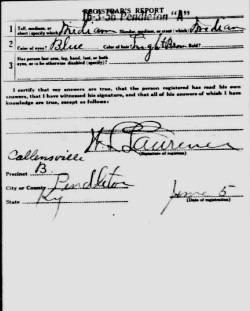 REGISTRAR'S REPORT
16-3-56 Pendleton "A"
1 Tall, medium, or short (specify which)? Medium Slender, medium, or stout (which)? Medium
2 Color of eyes? Blue Color of hair? Light Brown Bald?
3 Has person lost arm, leg, hand, foot, or both eyes, or is he otherwise disabled (specify)?
I certify that my answers are true, that the person registered has read his own answers, that I have witnessed his signature, and that all of his answers of which I have knowledge are true, except as follows:
(Signature of registrar)
Callensville
Precinct B.
City or County Pendleton
State Ky
June 5
(Date of registration)